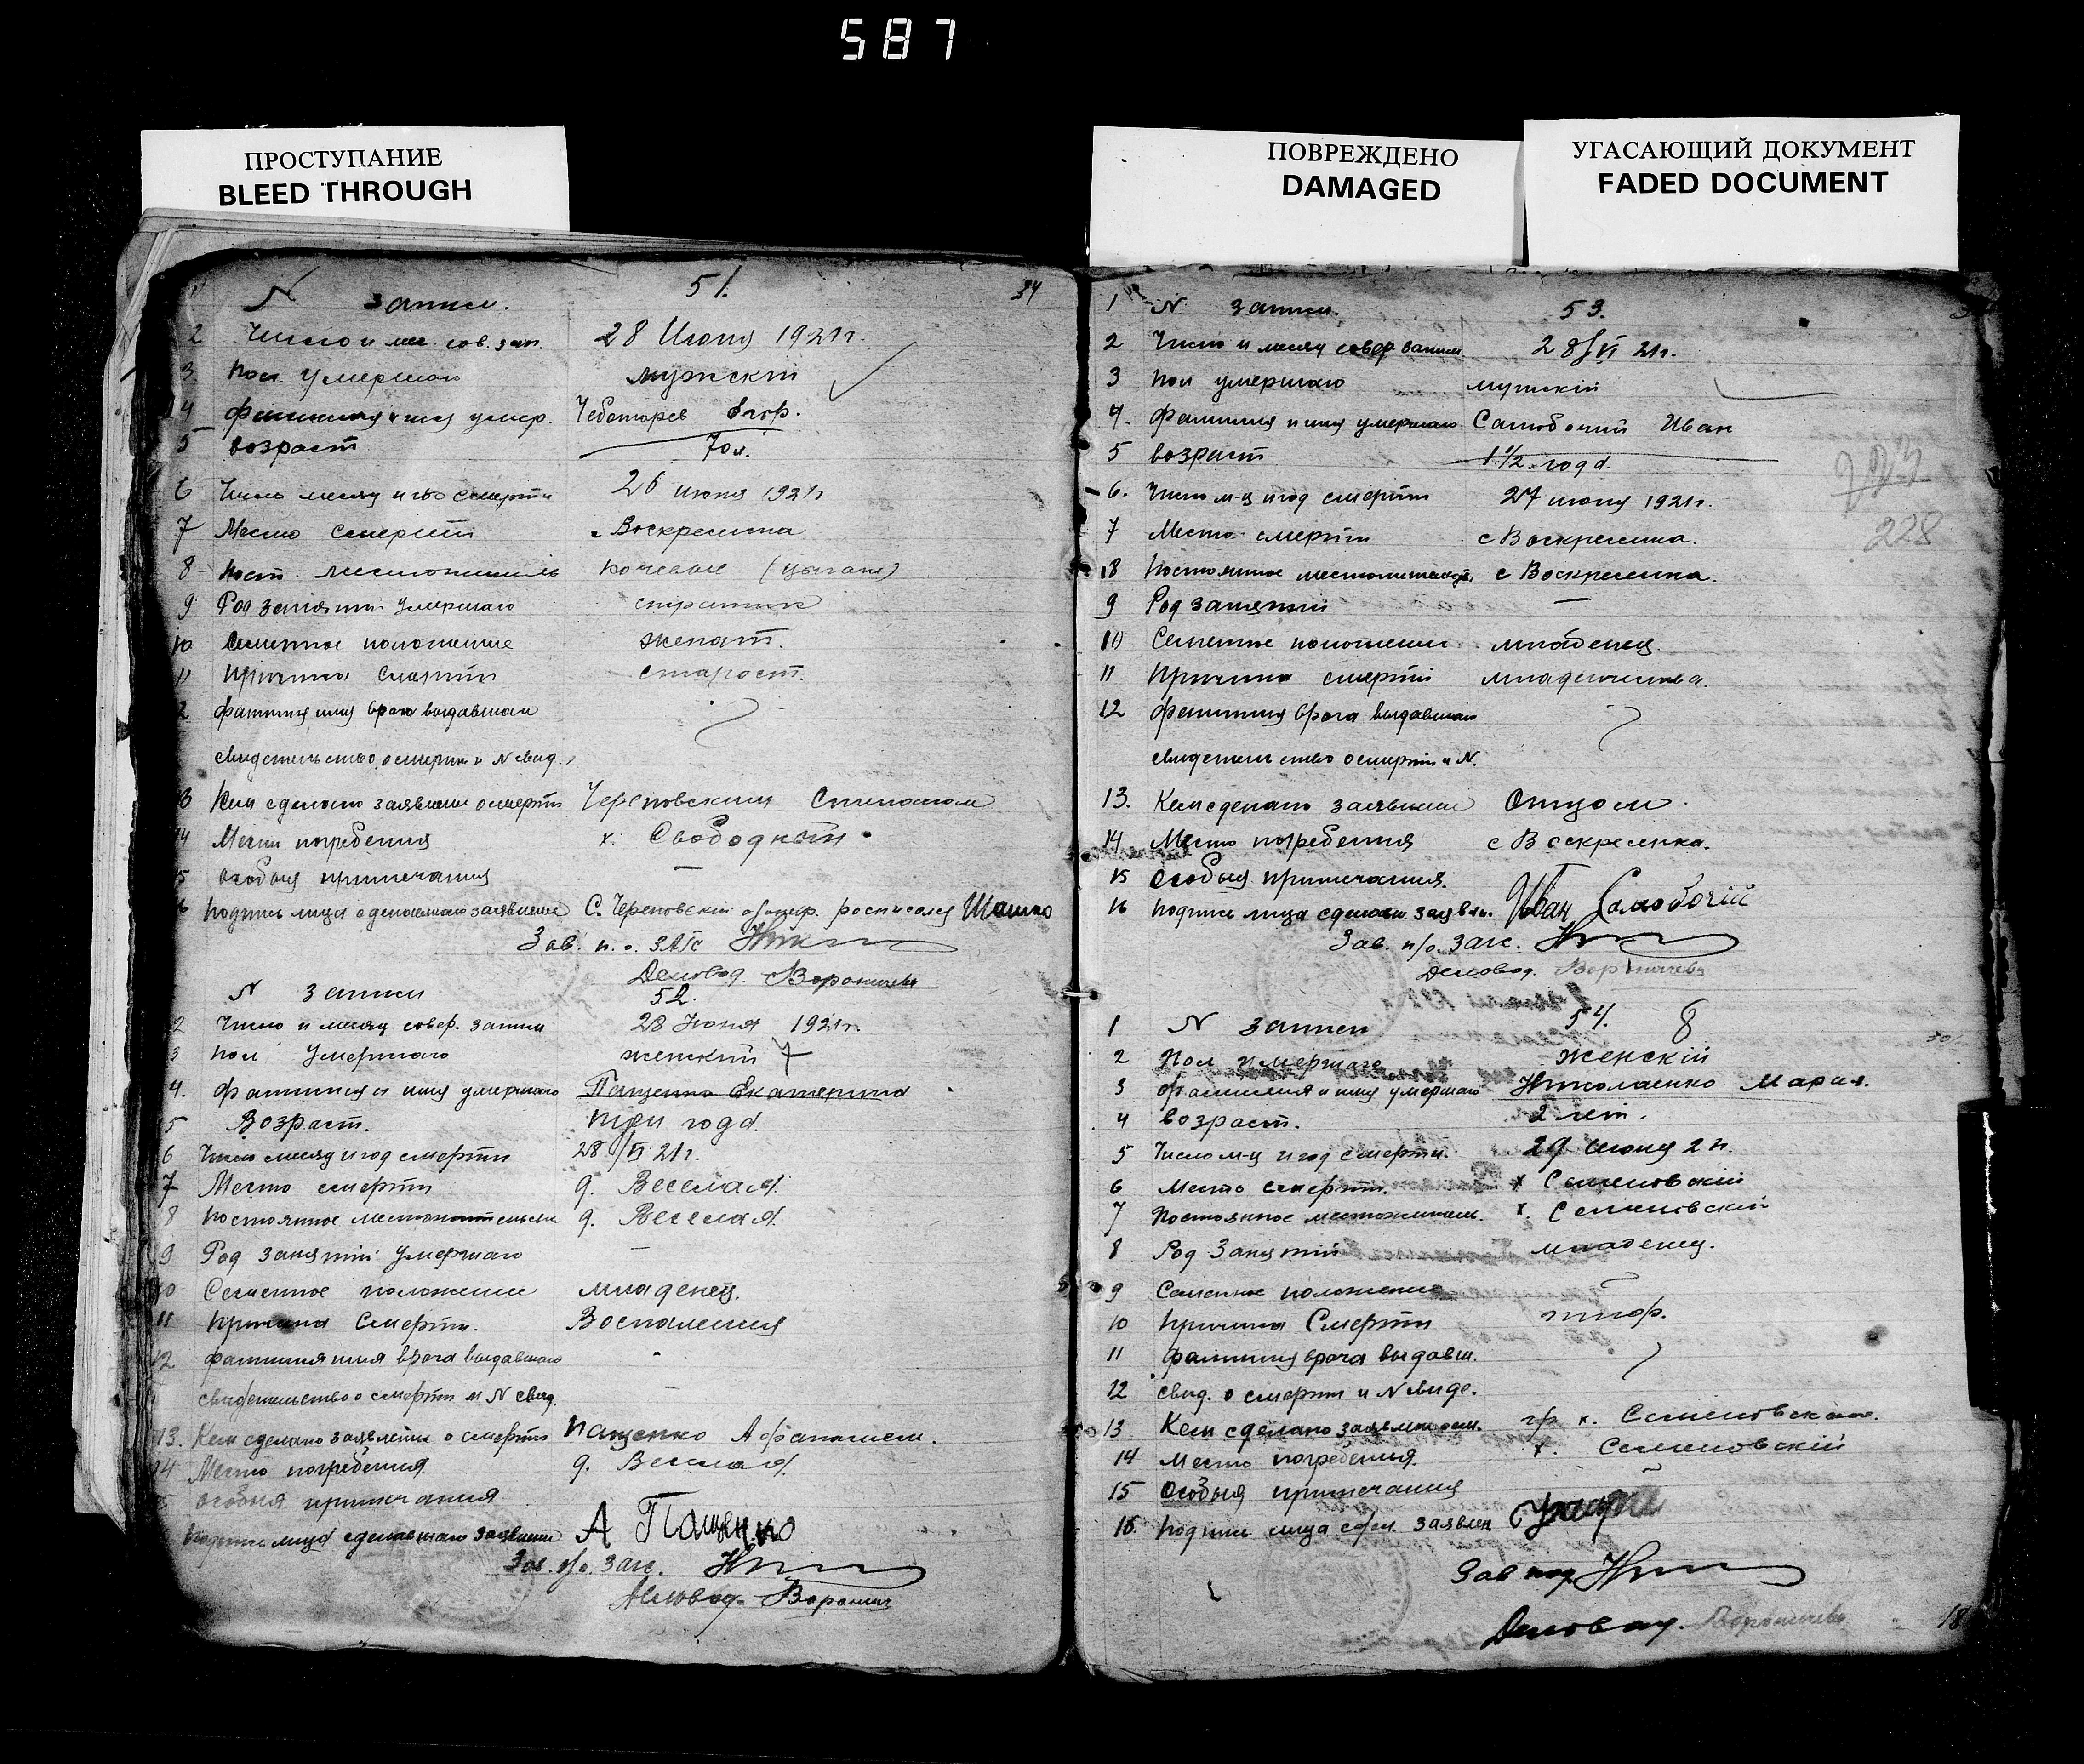 587
ПРОСТУПАНИЕ
BLEED THROUGH
ПОВРЕЖДЕНО
DAMAGED
УГАСАЮЩИЙ ДОКУМЕНТ
FADED DOCUMENT
N записи. 51. 34
2 Число и мес. сов. зап. 28 Июня 1921 г.
3 Пол умершаго мужской
4 фамилия и имя умер. Чеботарев
5 возраст 70 л.
6 Число месяц и год смерти 26 июня 1921 г
7 Место смерти с Воскресенка
8 Пост. местожитель кочевые (цыгане)
9 Род занятий умершаго
10 Семейное положение женат.
11 Причина смерти старост.
12 фамилия имя врача выдавшаго
свидетельство о смерти и N свид.
13 Кем сделано заявление о смерти Череповским Степаном
14 Место погребения х. Свободный
15 особыя примечания —
16 подпись лица сделавшаго заявление С. Череповский неграм. росписался
Зав. п. о. ЗАГС
Деловод.
N записи 52.
2 Число и месяц совер. записи 28 Июня 1921 г.
3 пол умершаго женский
4. фамилия и имя умершаго Пащенко Екатерина
5 Возраст. три года.
6 Число месяц и год смерти 28/VI 21 г.
7 Место смерти д. Веселая.
8 постоянное местожительства д. Веселая.
9 Род занятий умершаго —
10 Семейное положение младенец.
11 причина Смерти. Воспаления
12 фамилия имя врача выдавшаго
свидетельство о смерти и N свид. —
13. Кем сделано заявление о смерти Пащенко Афанасием.
14 Место погребения д. Веселая.
особыя примечания
подпись лица сделавшаго заявление А Пащенко
Зав. п/о. загс.
Деловод.
1 N записи. 53.
2 Число и месяц совер записи 28/VI 21 г.
3 пол умершаго мужский
4. фамилия и имя умершаго Самобочий Иван
5 возраст 1 1/2 года.
6. Число м-ц и год смерти 27 июня 1921 г.
7 Место смерти с Воскресенка.
8 постоянное местожительств. с Воскресенка.
9 Род занятий —
10 Семейное положение младенец.
11 Причина смерти младенчества.
12 фамилия врача выдавшаго
свидетельство о смерти и N.
13. Кем сделано заявление Отцом.
14 Место погребения с Воскресенка.
15 особыя примечания.
16 подпись лица сделавш заявлен. Иван Самобочий
Зав. п/о. загс.
Деловод.
228
1 N записи 54. 8
2 Пол умершаго Женский
3 фамилия и имя умершаго Николаенко Мария.
4 возраст. 2 лет.
5 Число м-ц и год смерти. 29 июня 21 г.
6 Место смерти. х Семеновский
7 Постоянное местожительс. х. Семеновский
8 Род занятий младенец.
9 Семейное положение
10 причина Смерти
11 фамилия врача выдавш.
12 свид. о смерти и N свиде.
13 Кем сделано заявление гр х. Семеновскаго.
14 Место погребения. х. Семеновский
15 Особыя примечания
16. подпись лица сдел. заявлен
Зав под
Деловод.
18